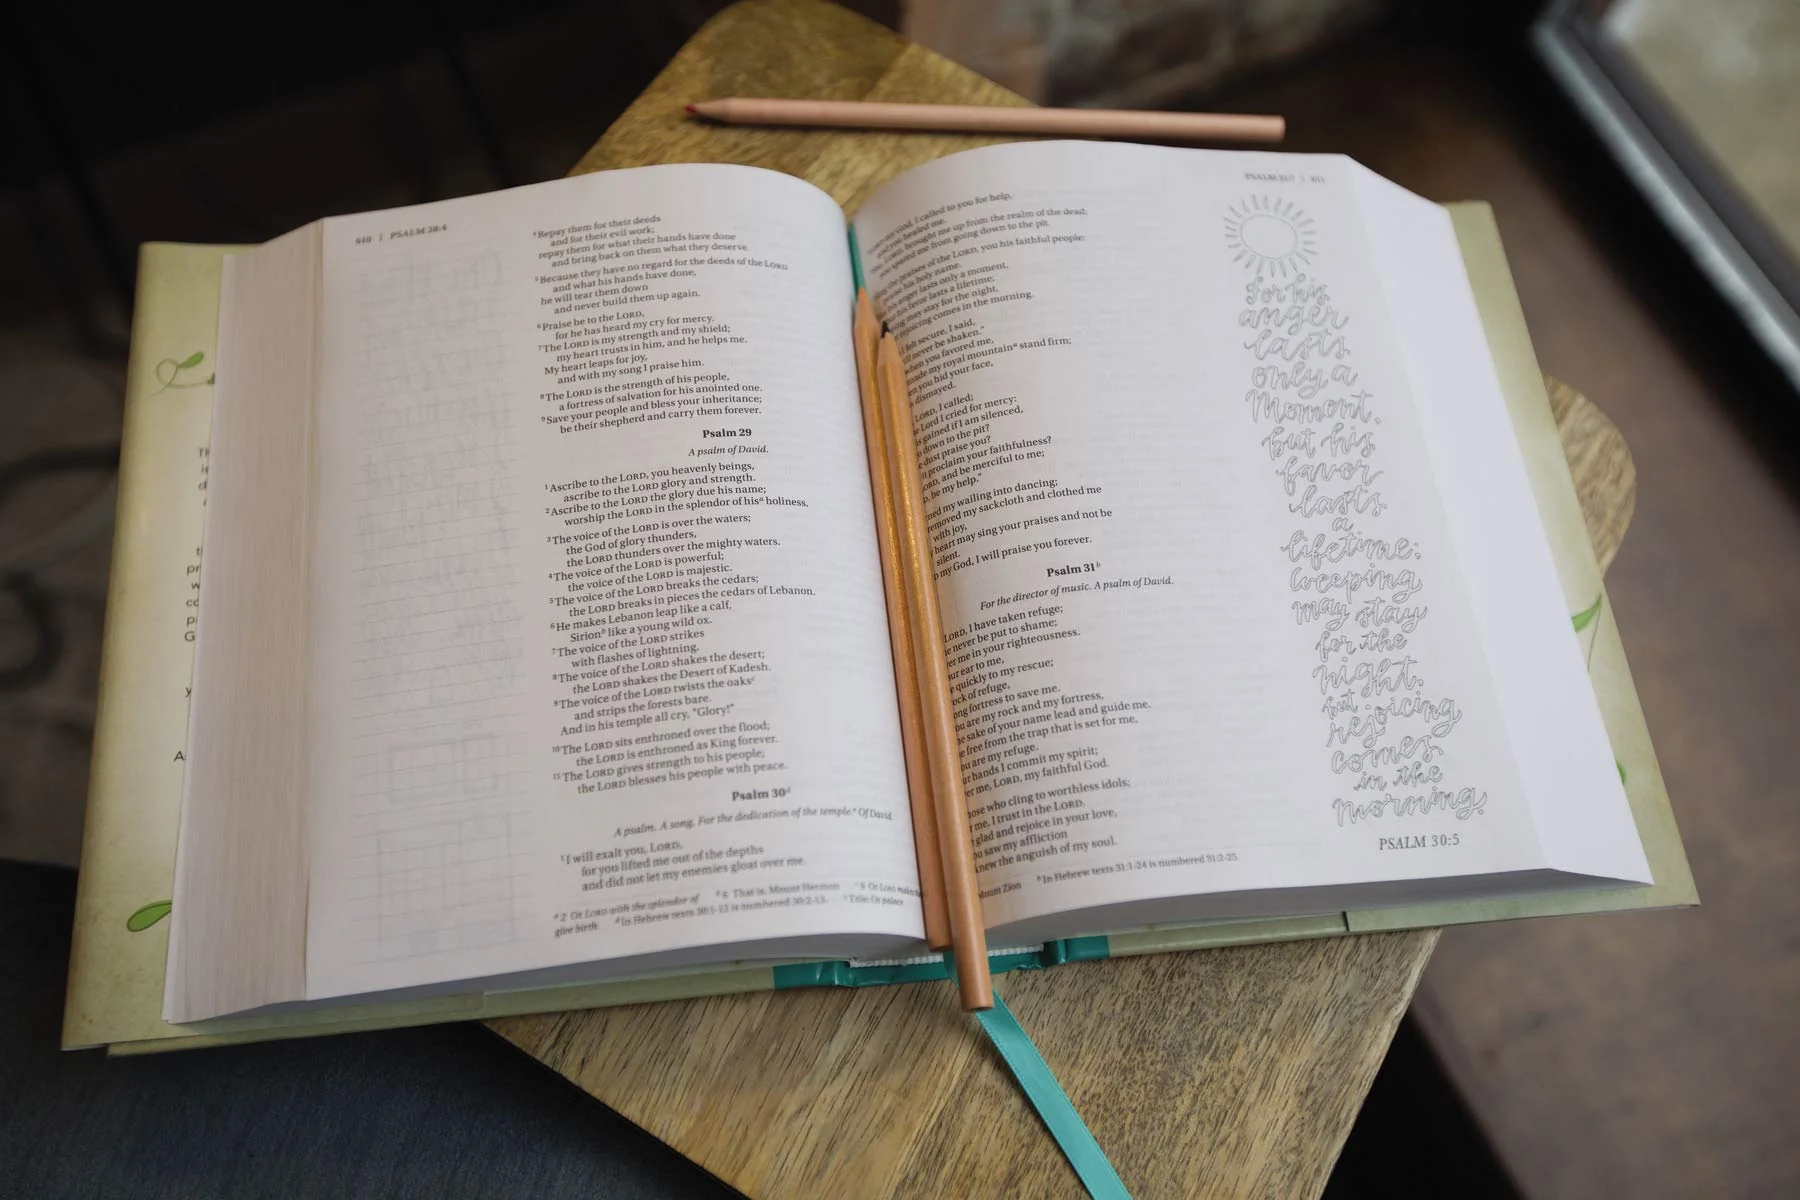 PSALM 28:4
⁴Repay them for their deeds
and for their evil work;
repay them for what their hands have done
and bring back on them what they deserve.
⁵Because they have no regard for the deeds of the LORD
and what his hands have done,
he will tear them down
and never build them up again.
⁶Praise be to the LORD,
for he has heard my cry for mercy.
⁷The LORD is my strength and my shield;
my heart trusts in him, and he helps me.
My heart leaps for joy,
and with my song I praise him.
⁸The LORD is the strength of his people,
a fortress of salvation for his anointed one.
⁹Save your people and bless your inheritance;
be their shepherd and carry them forever.
Psalm 29
A psalm of David.
¹Ascribe to the LORD, you heavenly beings,
ascribe to the LORD glory and strength.
²Ascribe to the LORD the glory due his name;
worship the LORD in the splendor of hisᵃ holiness.
³The voice of the LORD is over the waters;
the God of glory thunders,
the LORD thunders over the mighty waters.
⁴The voice of the LORD is powerful;
the voice of the LORD is majestic.
⁵The voice of the LORD breaks the cedars;
the LORD breaks in pieces the cedars of Lebanon.
⁶He makes Lebanon leap like a calf,
Sirionᵇ like a young wild ox.
⁷The voice of the LORD strikes
with flashes of lightning.
⁸The voice of the LORD shakes the desert;
the LORD shakes the Desert of Kadesh.
⁹The voice of the LORD twists the oaksᶜ
and strips the forests bare.
And in his temple all cry, “Glory!”
¹⁰The LORD sits enthroned over the flood;
the LORD is enthroned as King forever.
¹¹The LORD gives strength to his people;
the LORD blesses his people with peace.
Psalm 30ᵈ
A psalm. A song. For the dedication of the temple.ᵉ Of David.
¹I will exalt you, LORD,
for you lifted me out of the depths
and did not let my enemies gloat over me.
ᵃ 2 Or LORD with the splendor of ᵇ 6 That is, Mount Hermon ᶜ 9 Or LORD makes
give birth ᵈ In Hebrew texts 30:1-12 is numbered 30:2-13. ᵉ Title: Or palace
PSALM 31:7
my God, I called to you for help,
you healed me.
LORD, brought me up from the realm of the dead;
you spared me from going down to the pit.
the praises of the LORD, you his faithful people;
praise his holy name.
his anger lasts only a moment,
his favor lasts a lifetime;
may stay for the night,
rejoicing comes in the morning.
felt secure, I said,
never be shaken.”
when you favored me,
made my royal mountainᵃ stand firm;
you hid your face,
dismayed.
LORD, I called;
Lord I cried for mercy:
gained if I am silenced,
down to the pit?
dust praise you?
proclaim your faithfulness?
LORD, and be merciful to me;
be my help.”
my wailing into dancing;
removed my sackcloth and clothed me
with joy,
heart may sing your praises and not be
silent.
my God, I will praise you forever.
Psalm 31ᵇ
For the director of music. A psalm of David.
LORD, I have taken refuge;
never be put to shame;
me in your righteousness.
ear to me,
quickly to my rescue;
of refuge,
fortress to save me.
are my rock and my fortress,
sake of your name lead and guide me.
free from the trap that is set for me,
are my refuge.
hands I commit my spirit;
me, LORD, my faithful God.
those who cling to worthless idols;
me, I trust in the LORD.
glad and rejoice in your love,
saw my affliction
knew the anguish of my soul.
Mount Zion ᵇ In Hebrew texts 31:1-24 is numbered 31:2-25.
For his
anger
lasts
only a
moment,
but his
favor
lasts
a
lifetime;
weeping
may stay
for the
night,
but
rejoicing
comes
in the
morning.
PSALM 30:5